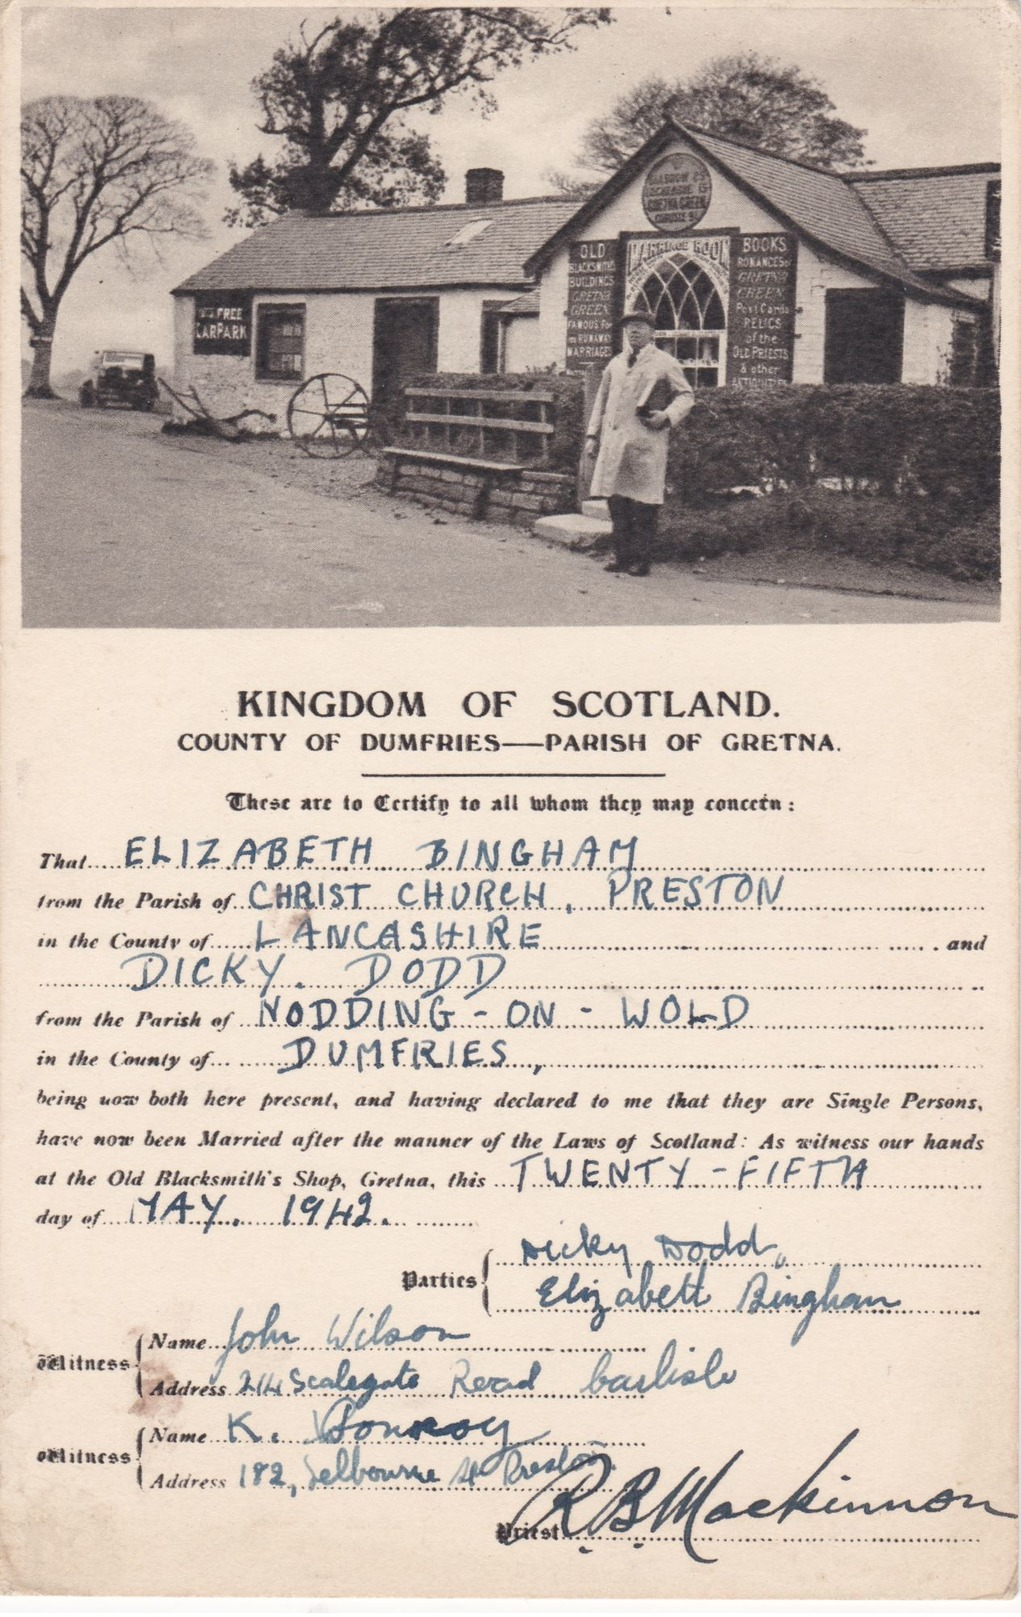 GRETNA GREEN
MARRIAGE ROOM
OLD
BLACKSMITHS
BUILDINGS
GRETNA
GREEN
FAMOUS FOR
RUNAWAY
MARRIAGES
BOOKS
ROMANCES of
GRETNA
GREEN
Post Cards
RELICS
of the
OLD PRIESTS
& other
ANTIQUITIES
FREE
CAR PARK
KINGDOM OF SCOTLAND.
COUNTY OF DUMFRIES—PARISH OF GRETNA.
These are to Certify to all whom they may concern:
That ELIZABETH BINGHAM
from the Parish of CHRIST CHURCH, PRESTON
in the County of LANCASHIRE and
DICKY. DODD
from the Parish of NODDING-ON-WOLD
in the County of DUMFRIES,
being now both here present, and having declared to me that they are Single Persons,
have now been Married after the manner of the Laws of Scotland: As witness our hands
at the Old Blacksmith's Shop, Gretna, this TWENTY-FIFTH
day of MAY. 1942.
Parties Dicky Dodd,
Elizabeth Bingham
Witness Name John Wilson
Address Scalegate Road Carlisle
Witness Name K.
Address 182, Selbourne St Preston.
Priest R B Mackinnon